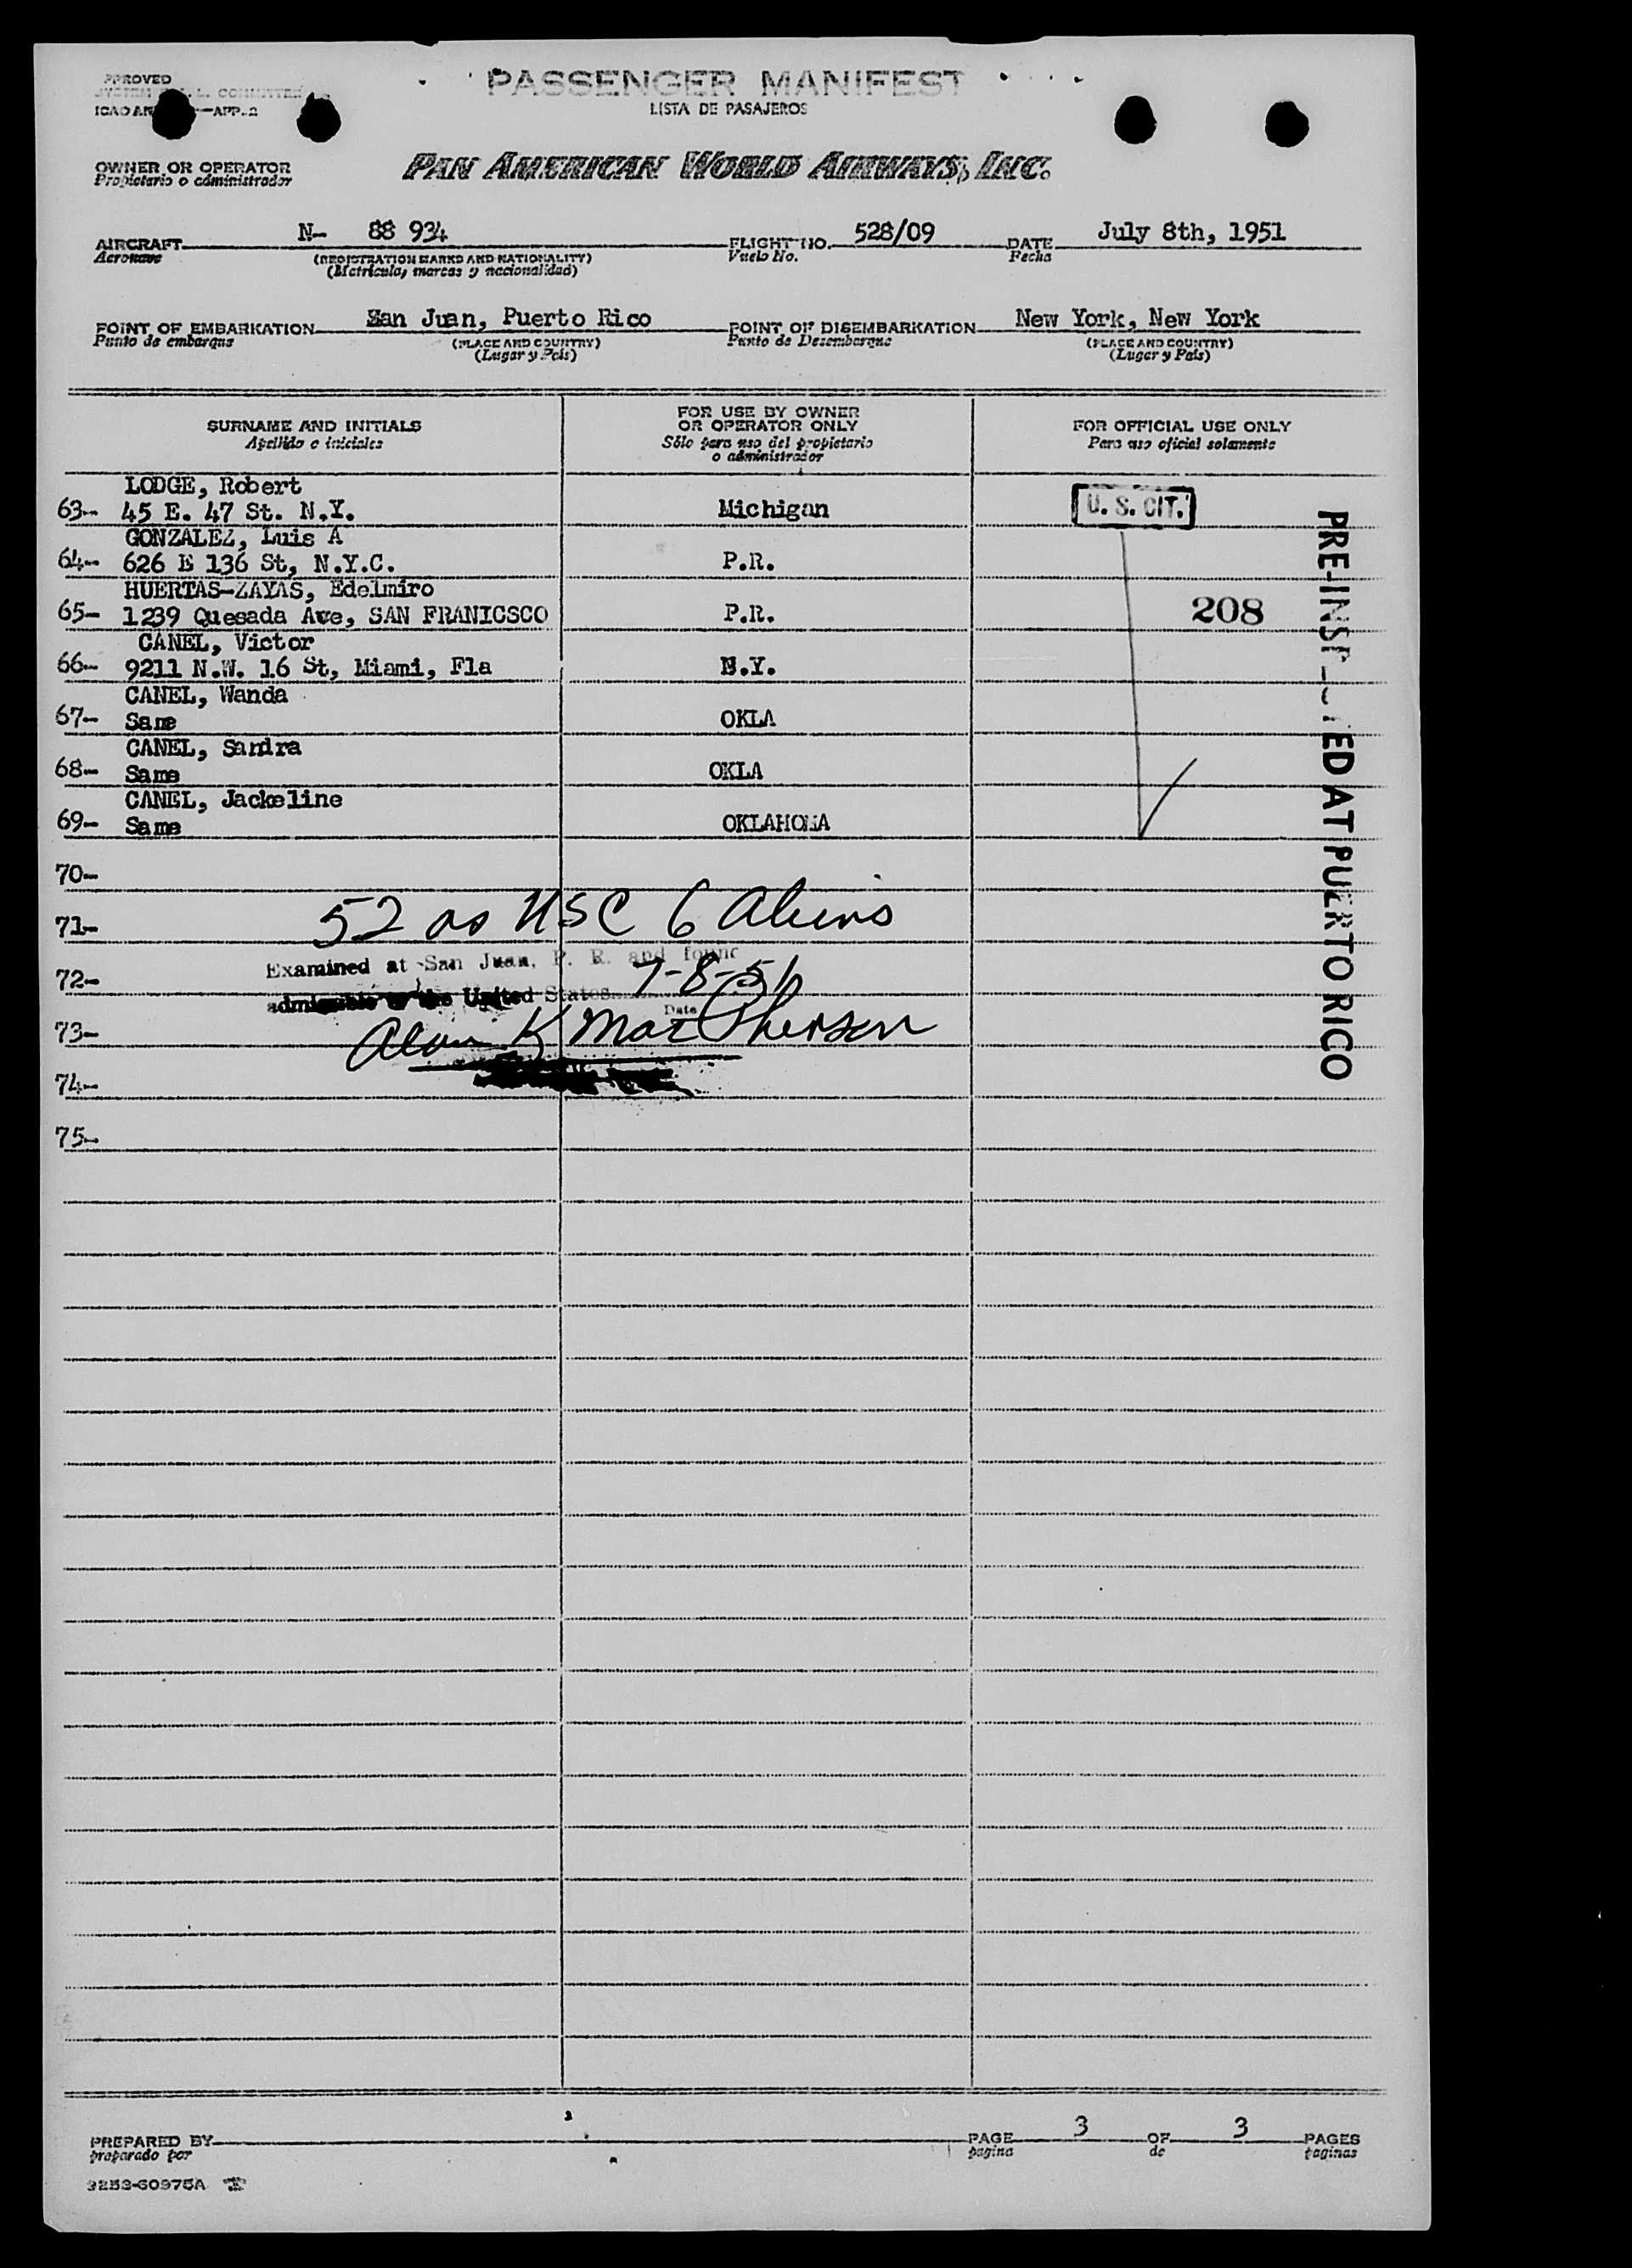 PASSENGER MANIFEST
LISTA DE PASAJEROS
PPROVED
COMMITTEE
ICAO AN —APP.2
OWNER OR OPERATOR
Propietario o administrador
PAN AMERICAN WORLD AIRWAYS, INC.
AIRCRAFT N- 88 934 FLIGHT NO. 528/09 DATE July 8th, 1951
Aeronave (REGISTRATION MARKS AND NATIONALITY) Vuelo No. Fecha
(Matrícula, marcas y nacionalidad)
POINT OF EMBARKATION San Juan, Puerto Rico POINT OF DISEMBARKATION New York, New York
Punto de embarque (PLACE AND COUNTRY) Punto de Desembarque (PLACE AND COUNTRY)
(Lugar y País) (Lugar y País)
SURNAME AND INITIALS
Apellido e iniciales
FOR USE BY OWNER
OR OPERATOR ONLY
Sólo para uso del propietario
o administrador
FOR OFFICIAL USE ONLY
Para uso oficial solamente
LODGE, Robert
63- 45 E. 47 St. N.Y. Michigan U. S. CIT.
GONZALEZ, Luis A
64- 626 E 136 St, N.Y.C. P.R.
HUERTAS-ZAYAS, Edelmiro
65- 1239 Quesada Ave, SAN FRANICSCO P.R. 208
CANEL, Victor
66- 9211 N.W. 16 St, Miami, Fla N.Y.
CANEL, Wanda
67- Same OKLA
CANEL, Sandra
68- Same OKLA
CANEL, Jackeline
69- Same OKLAHOMA
PRE-INSPECTED AT PUERTO RICO
70-
71- 52 as USC 6 Aliens
Examined at San Juan, P. R. and found
72- 7-8-51
admissible to the United States
Date
73- Alan K MacPherson
74-
75-
PREPARED BY PAGE 3 OF 3 PAGES
preparado por pagina de paginas
3253-60975A